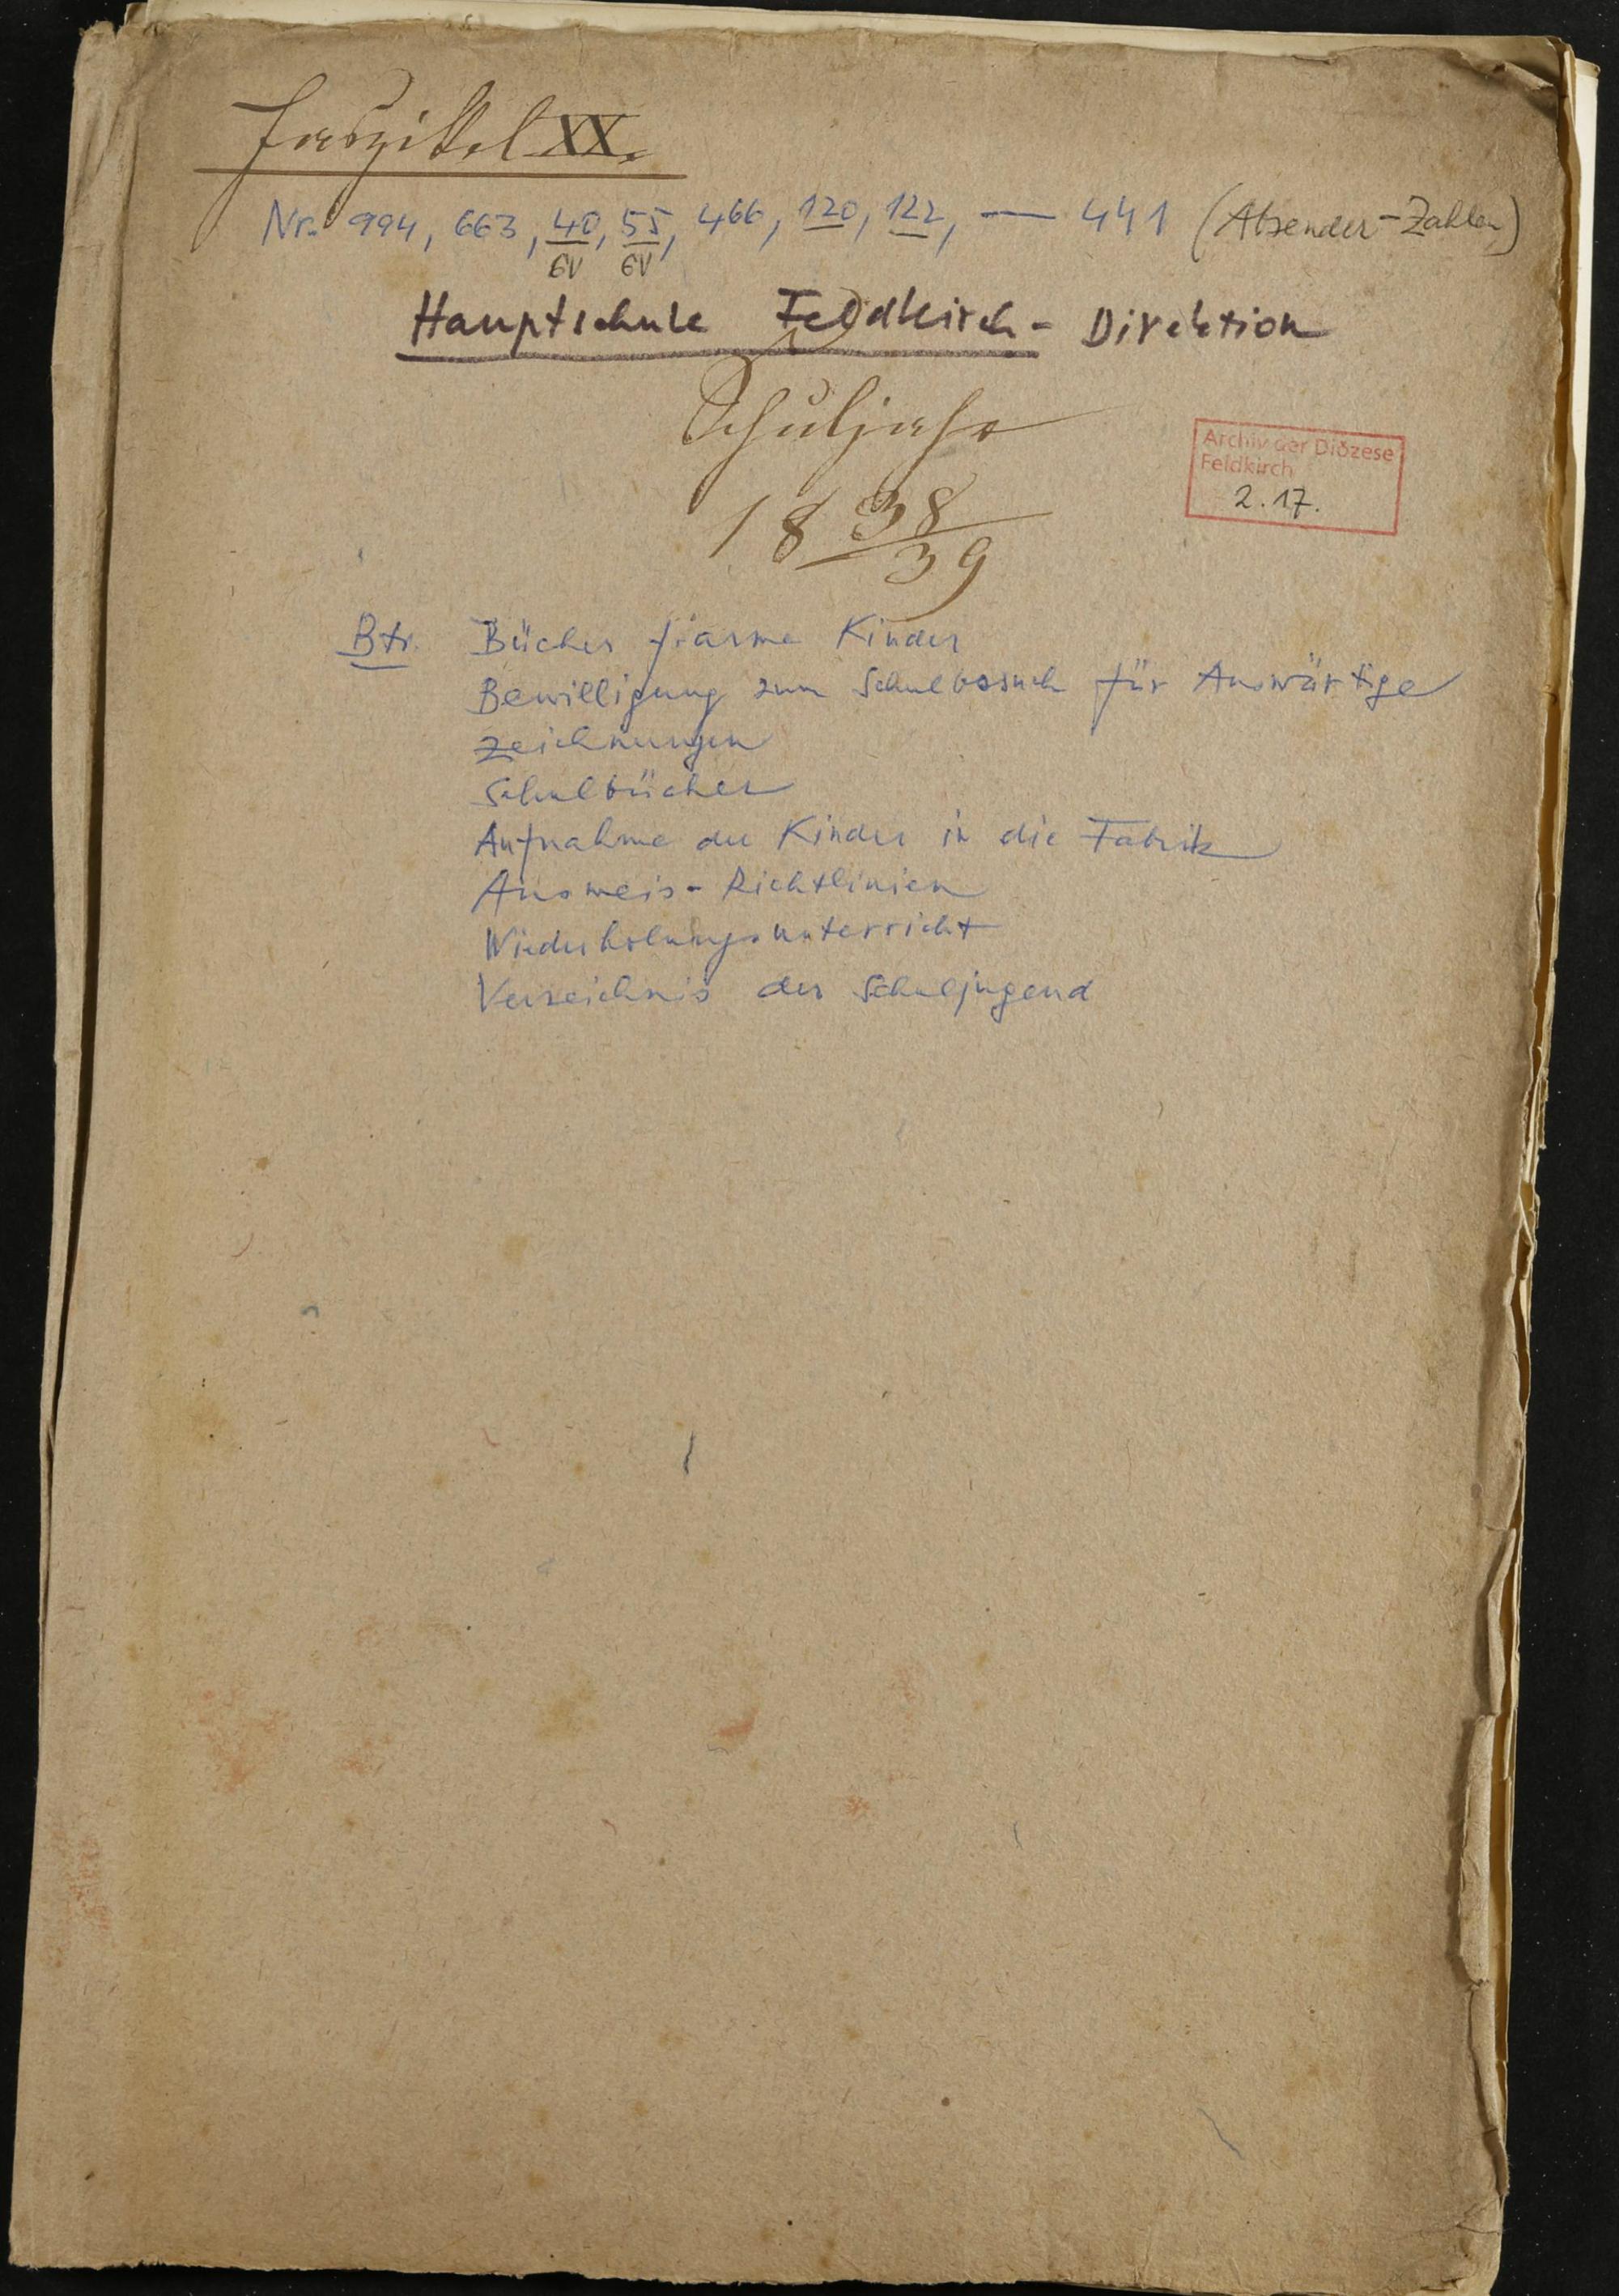 Faszikel XX.
Nr. 994, 663, 40, 55, 466, 120, 122, — 441 (Absender-Zahlen)
GV GV
Hauptschule Feldkirch - Direktion
Schuljahr
Archiv der Diözese
Feldkirch
2.17.
18 38/39
Btr. Bücher f. arme Kinder
Bewilligung zum Schulbesuch für Auswärtige
Zeichnungen
Schulbücher
Aufnahme der Kinder in die Fabrik
Ausweis-Richtlinien
Wiederholungsunterricht
Verzeichnis der Schuljugend